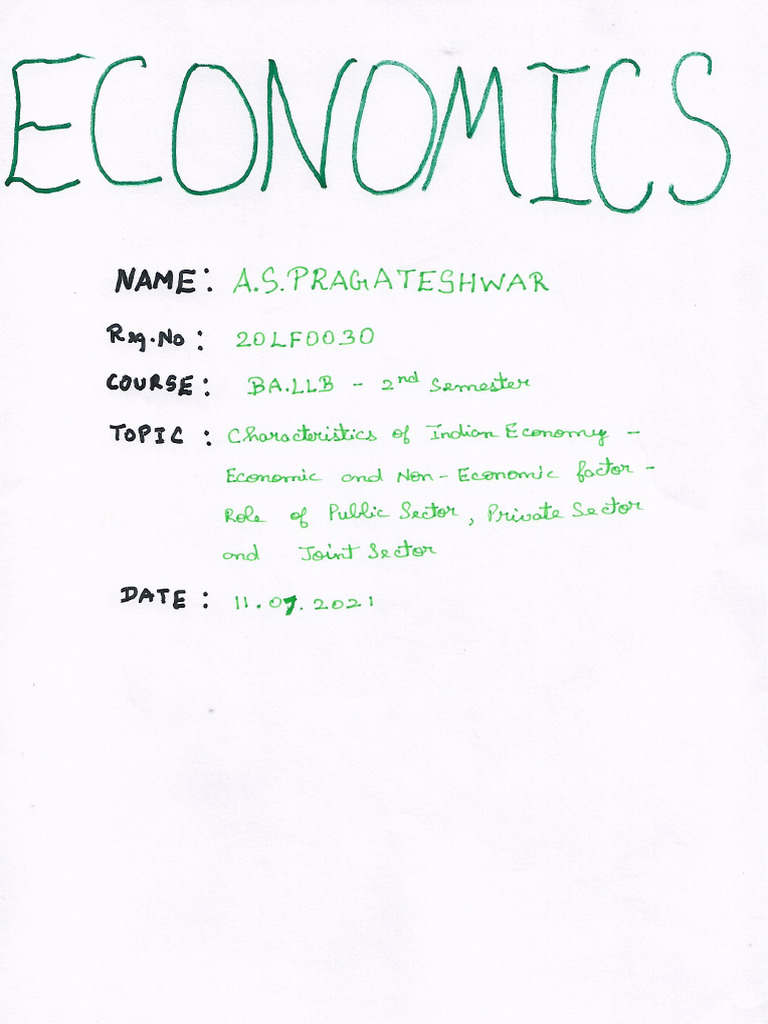 ECONOMICS
NAME: A.S.PRAGATESHWAR
Reg.No: 20LF0030
COURSE: BA.LLB - 2nd Semester
TOPIC: Characteristics of Indian Economy -
Economic and Non-Economic factor -
Role of Public Sector, Private Sector
and Joint Sector
DATE: 11.07.2021